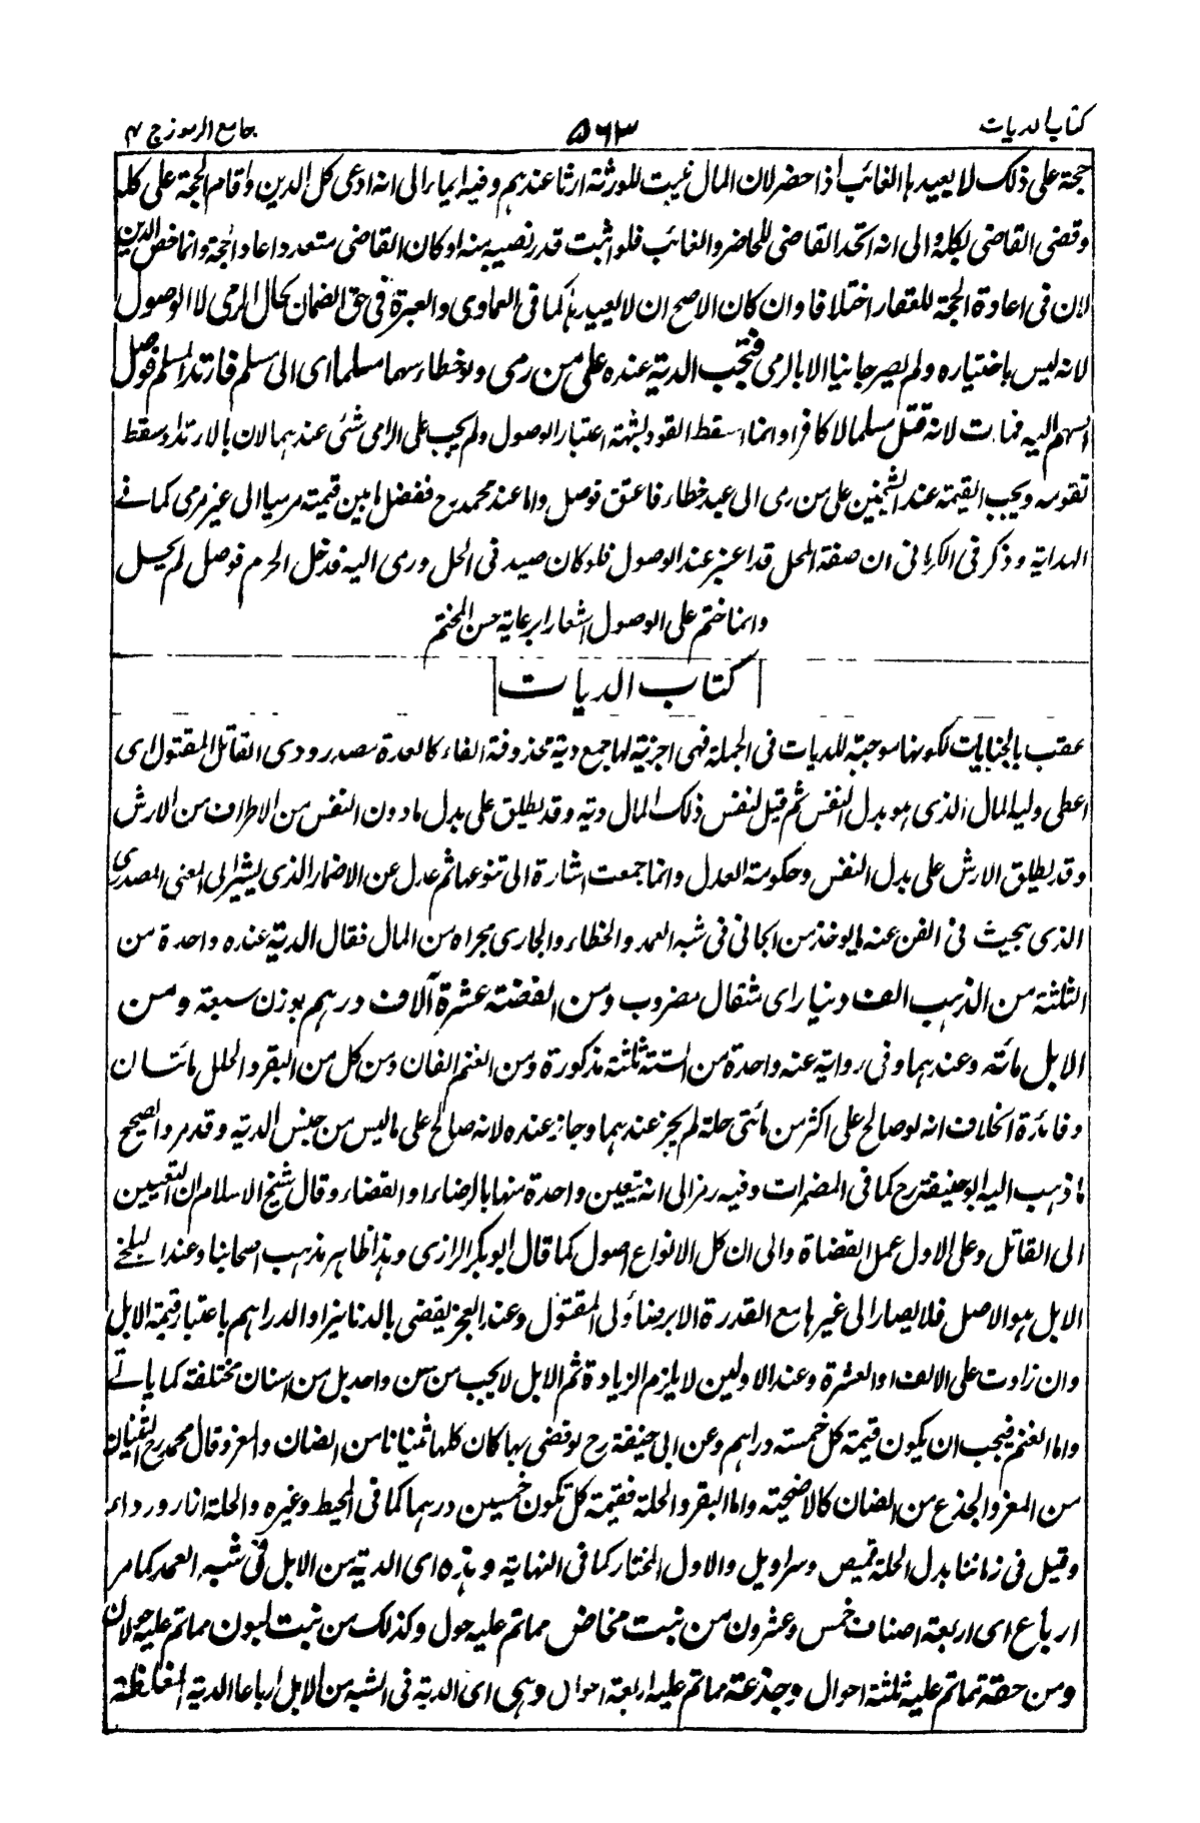 كتاب الديات ٥٦٣ جامع الرموز ج ٣
حجة على ذلك لا يعيدها الغائب اذا حضر لان المال يثبت للورثة ارثا عندهم وفيه ايماء الى انه ادعى كل الدين واقام الحجة على كله
وقضى القاضى بكله والى انه اتحد القاضى للحاضر والغائب فلو اثبت قدر نصيبه منه او كان القاضى متعددا اعاد الحجة وانما خص الدين
لان فى اعادة الحجة للعقار اختلافا وان كان الاصح ان لا يعيدها كما فى العمادى والعبرة فى حق الضمان بحال الرمى لا الوصول
لانه ليس باختياره ولم يصر جانيا الا بالرمى فتجب الدية عنده على من رمى ولو خطاء سهما مسلما اى الى مسلم فارتد المسلم فوصل
السهم اليه فمات لانه قتل مسلما لا كافرا وانما سقط القود لشبهة اعتبار الوصول ولم يجب على الرامى شئ عندهما لان بالارتداد سقط
تقومه ويجب القيمة عند الشيخين على من رمى الى عبد خطاء فاعتق فوصل واما عند محمد رح ففضل ما بين قيمته مرميا الى غير مرمى كما فے
الهداية وذكر فى الكرمانى ان صفة المحل قد اعتبر عند الوصول فلو كان صيد فى الحل ورمى اليه فدخل الحرم فوصل لم يحل
وانما ختم على الوصول اشعارا برعاية حسن المختتم
كتاب الديات
عقب بالجنايات لكونها موجبة للديات فى الجملة فهى اجزية لها جمع دية محذوفة الفاء كالعدة مصدر ودى القاتل المقتول اى
اعطى وليه المال الذى هو بدل النفس ثم قيل لنفس ذلك المال دية وقد يطلق على بدل ما دون النفس من الاطراف من الارش
وقد يطلق الارش على بدل النفس وحكومة العدل وانما جمعت اشارة الى تنوعها ثم عدل عن الاضمار الذى يشير الى المعنى المصدرى
الذى يبحث فى الفن عنه ما يوخذ من الجانى فى شبه العمد والخطاء والجارى مجراه من المال فقال الدية عنده واحدة من
الثلثة من الذهب الف دينار اى مثقال مضروب ومن الفضة عشرة آلاف درهم بوزن سبعة ومن
الابل مائة وعندهما وفى رواية عنه واحدة من الستة ثلثة مذكورة ومن الغنم الفان ومن كل من البقر والحلل مائتان
وفائدة الخلاف انه لو صالح على اكثر من مائتى حلة لم يجز عندهما وجاز عنده لانه صالح على ما ليس من جنس الدية وقد مر والصحيح
ما ذهب اليه ابو حنيفة رح كما فى المضمرات وفيه رمز الى انه يتعين واحدة منها بالرضاء او القضاء وقال شيخ الاسلام ان التعيين
الى القاتل وعلى الاول عمل القضاة والى ان كل الانواع اصول كما قال ابو بكر الرازى وهذا ظاهر مذهب اصحابنا وعند البلخے
الابل هو الاصل فلا يصار الى غيرها مع القدرة الا برضاء ولى المقتول وعند العجز يقضى بالدنانير او الدراهم باعتبار قيمة الابل
وان زادت على الالف او العشرة وعند الاولين لا يلزم الزيادة ثم الابل لا يجب من سن واحد بل من اسنان مختلفة كما ياتے
واما الغنم فيجب ان يكون قيمة كل خمسة دراهم وعن ابى حنيفة رح لو قضى بها كان كلها ثنيانا من الضان والمعز وقال محمد رح الثنيان
من المعز والجذع من الضان كالاضحية واما البقر والحلة فقيمة كل تكون خمسين درهما كما فى المحيط وغيره والحلة ازار ورداء
وقيل فى زماننا بدل الحلة قميص وسراويل والاول المختار كما فى النهاية وهذه اى الدية من الابل فى شبه العمد كما مر
ارباع اى اربعة اصناف خمس وعشرون من بنت مخاض مما تم عليه حول وكذلك من بنت لبون مما تم عليه حولان
ومن حقة مما تم عليه ثلثة احوال وجذعة مما تم عليه اربعة احوال وهى اى الدية فى الشبه من الابل ارباعا الدية المغلظة